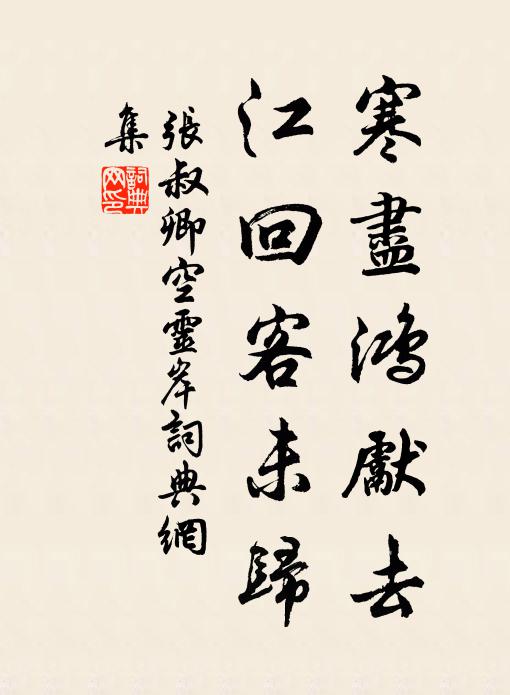 寒盡鴻獻去
江回客未歸
張叔卿空靈岸詞典網
集
詞典
网印